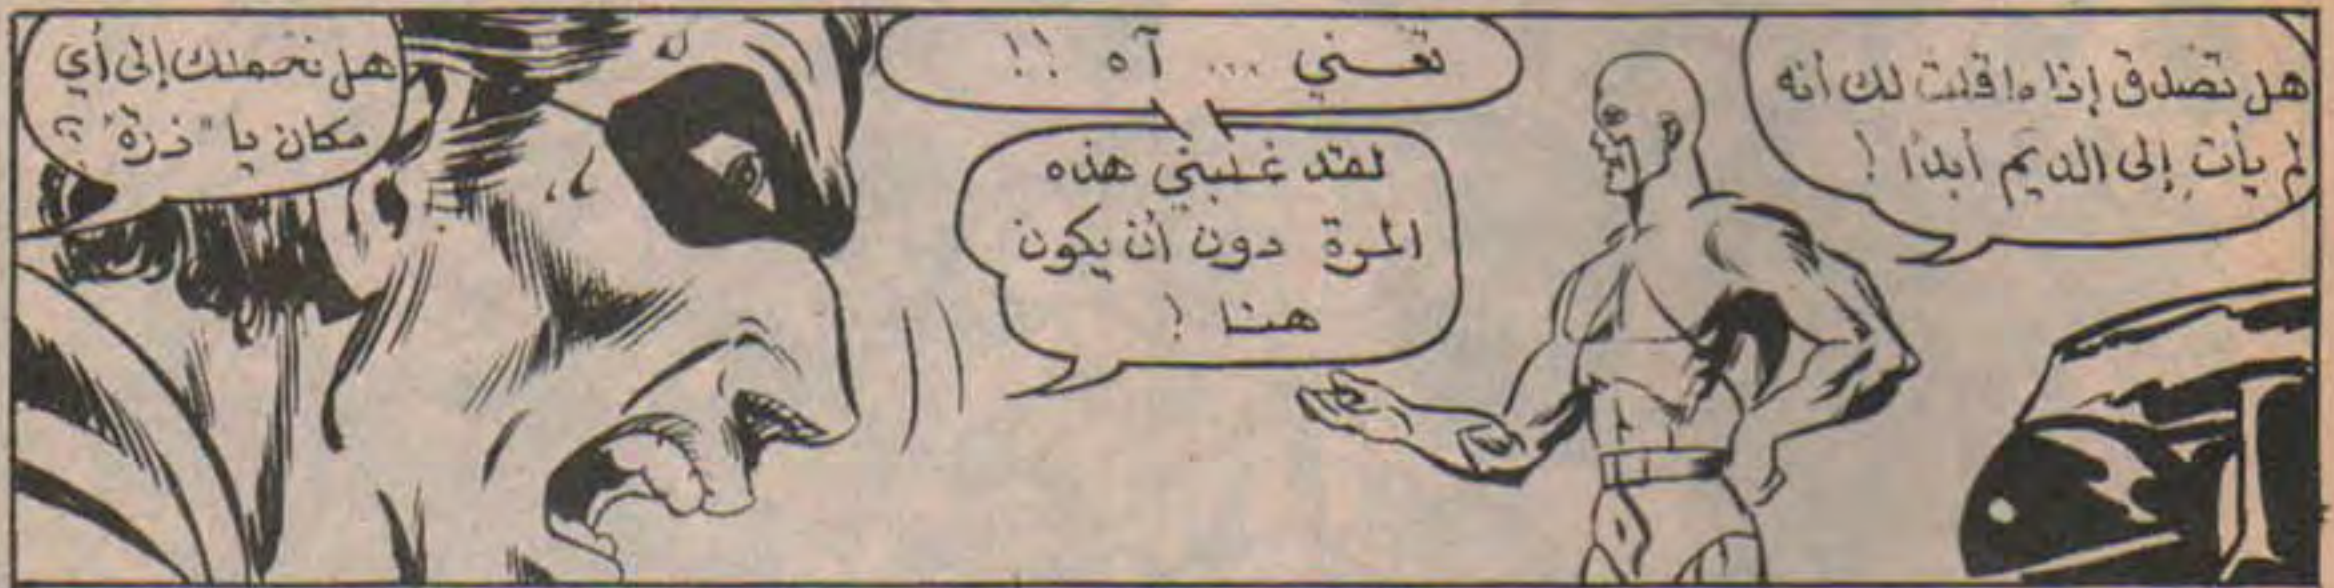 هل تصدق إذا ما قلت لك أنه
لم يأت إلى الديم أبدًا !
تعني ... آه !!
لقد غلبني هذه
المرة دون أن يكون
هنا !
هل نحملك إلى أي
مكان يا "ذرة" ؟